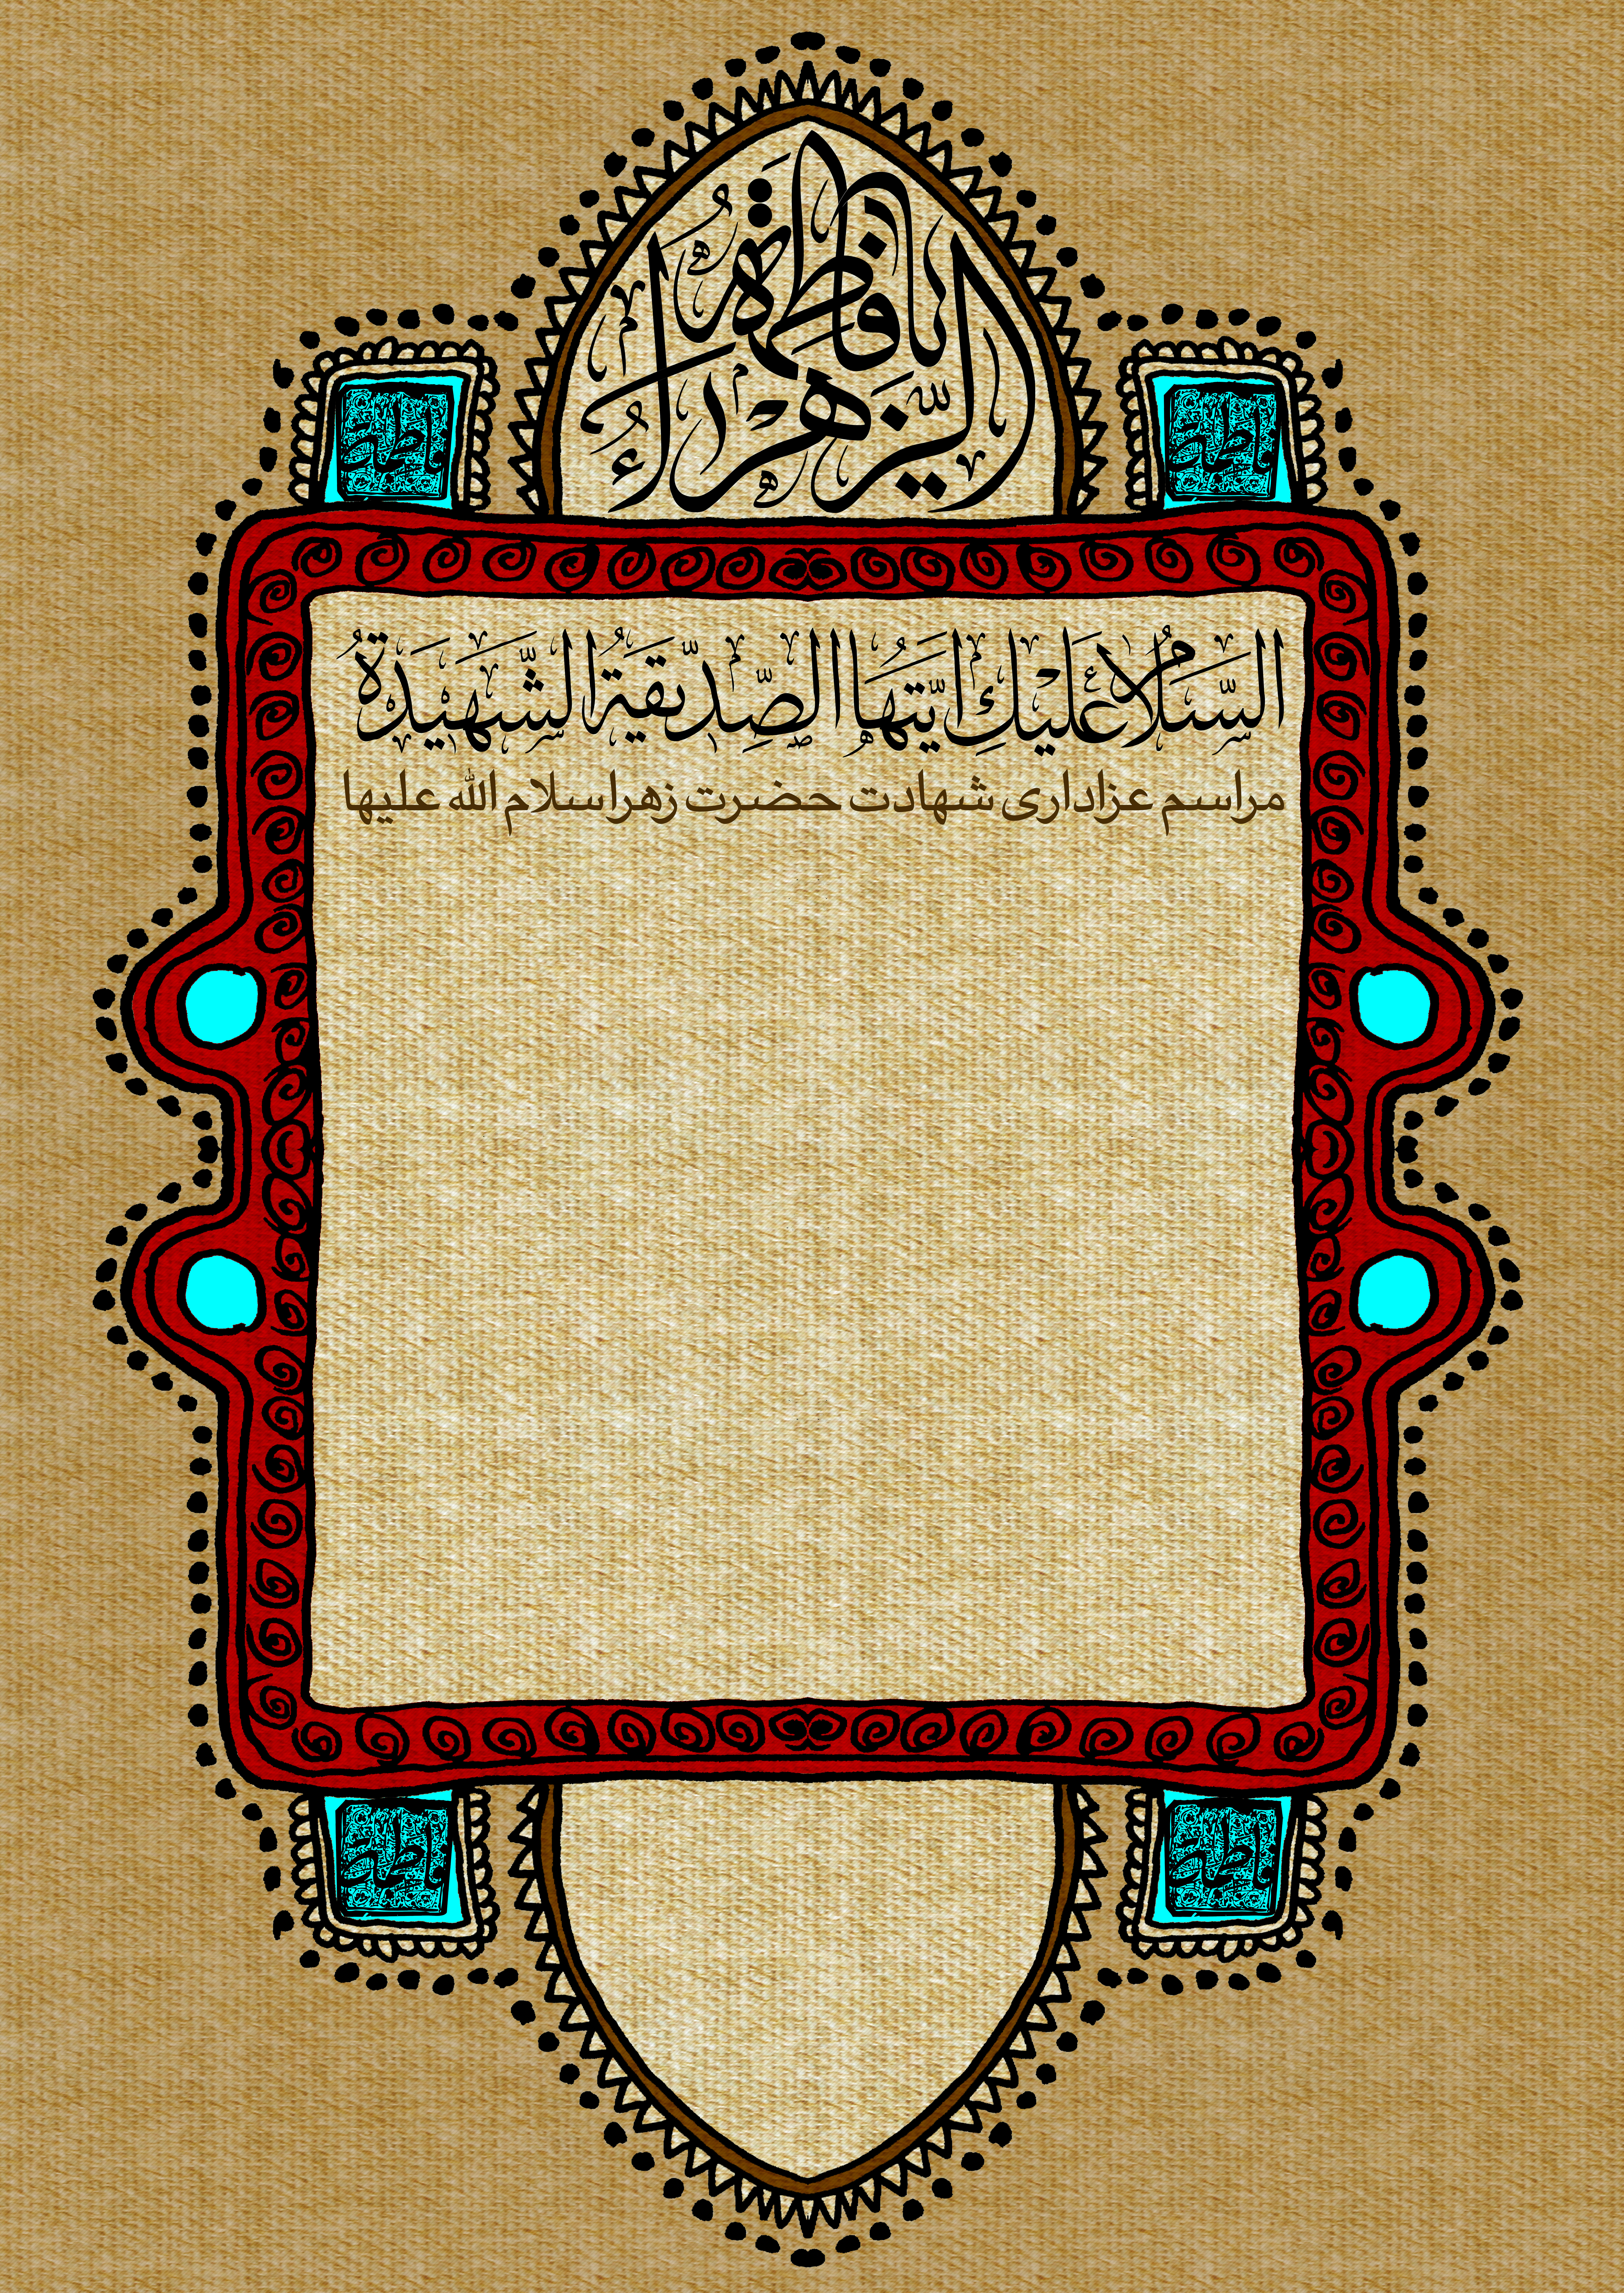 یا فاطمة
الزهراء
السَّلامُ عَلَیْكِ ایَّتُهَا الصِّدّیقَةُ الشَّهیدَةُ
مراسم عزاداری شهادت حضرت زهرا سلام الله علیها
فاطمة
فاطمة
فاطمة
فاطمة